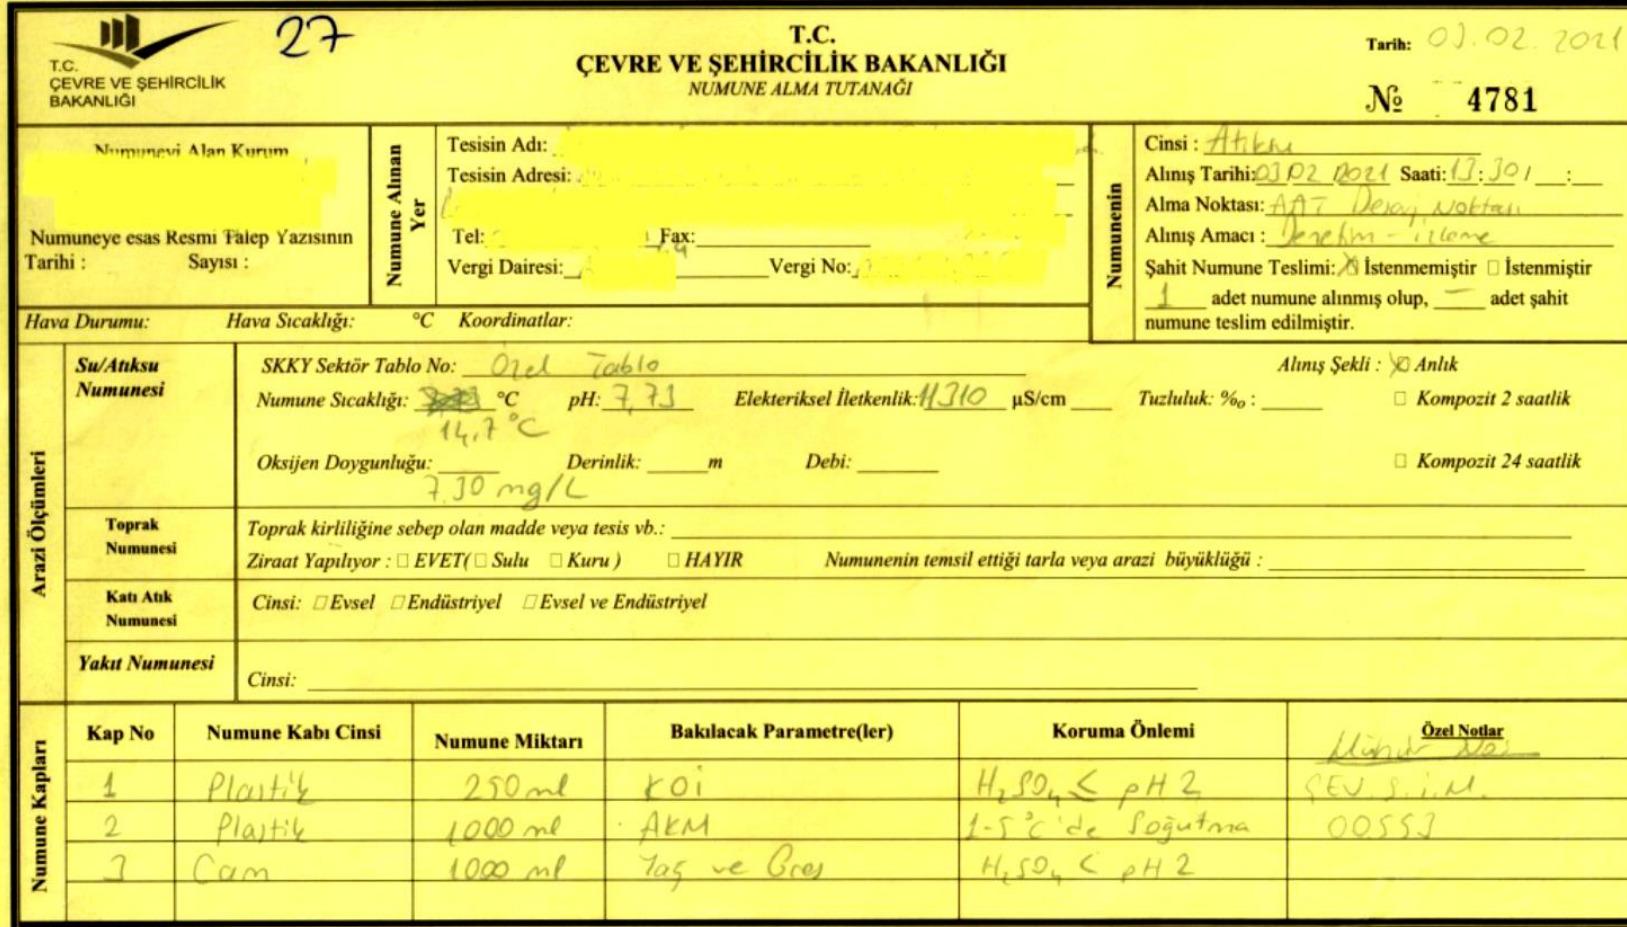 27
T.C.
ÇEVRE VE ŞEHİRCİLİK
BAKANLIĞI
T.C.
ÇEVRE VE ŞEHİRCİLİK BAKANLIĞI
NUMUNE ALMA TUTANAĞI
Tarih: 03.02.2021
№ 4781
Numuneyi Alan Kurum
Numuneye esas Resmi Talep Yazısının
Tarihi : Sayısı :
Numune Alınan Yer
Tesisin Adı:
Tesisin Adresi:
Tel: Fax:
Vergi Dairesi: Vergi No:
Numunenin
Cinsi : Atıksu
Alınış Tarihi: 03/02/2021 Saati: 13:30/ __:__
Alma Noktası: AAT Deşarj Noktası
Alınış Amacı : Denetim - izleme
Şahit Numune Teslimi: ☒ İstenmemiştir □ İstenmiştir
1 adet numune alınmış olup, — adet şahit
numune teslim edilmiştir.
Hava Durumu: Hava Sıcaklığı: °C Koordinatlar:
Arazi Ölçümleri
Su/Atıksu
Numunesi
SKKY Sektör Tablo No: Özel Tablo
Alınış Şekli : ☒ Anlık
Numune Sıcaklığı: °C pH: 7,73 Elekteriksel İletkenlik: 11310 µS/cm Tuzluluk: %o : □ Kompozit 2 saatlik
14,7 °C
Oksijen Doygunluğu: Derinlik: m Debi: □ Kompozit 24 saatlik
7,30 mg/L
Toprak
Numunesi
Toprak kirliliğine sebep olan madde veya tesis vb.:
Ziraat Yapılıyor : □ EVET( □ Sulu □ Kuru ) □ HAYIR Numunenin temsil ettiği tarla veya arazi büyüklüğü :
Katı Atık
Numunesi
Cinsi: □ Evsel □ Endüstriyel □ Evsel ve Endüstriyel
Yakıt Numunesi
Cinsi:
Numune Kapları
Kap No Numune Kabı Cinsi Numune Miktarı Bakılacak Parametre(ler) Koruma Önlemi Özel Notlar
Mühür No:
1 Plastik 250 ml KOİ H₂SO₄ ≤ pH 2 ÇEV.Ş.İ.M.
2 Plastik 1000 ml AKM 1-5 °C'de Soğutma 00553
3 Cam 1000 ml Yağ ve Gres H₂SO₄ < pH 2